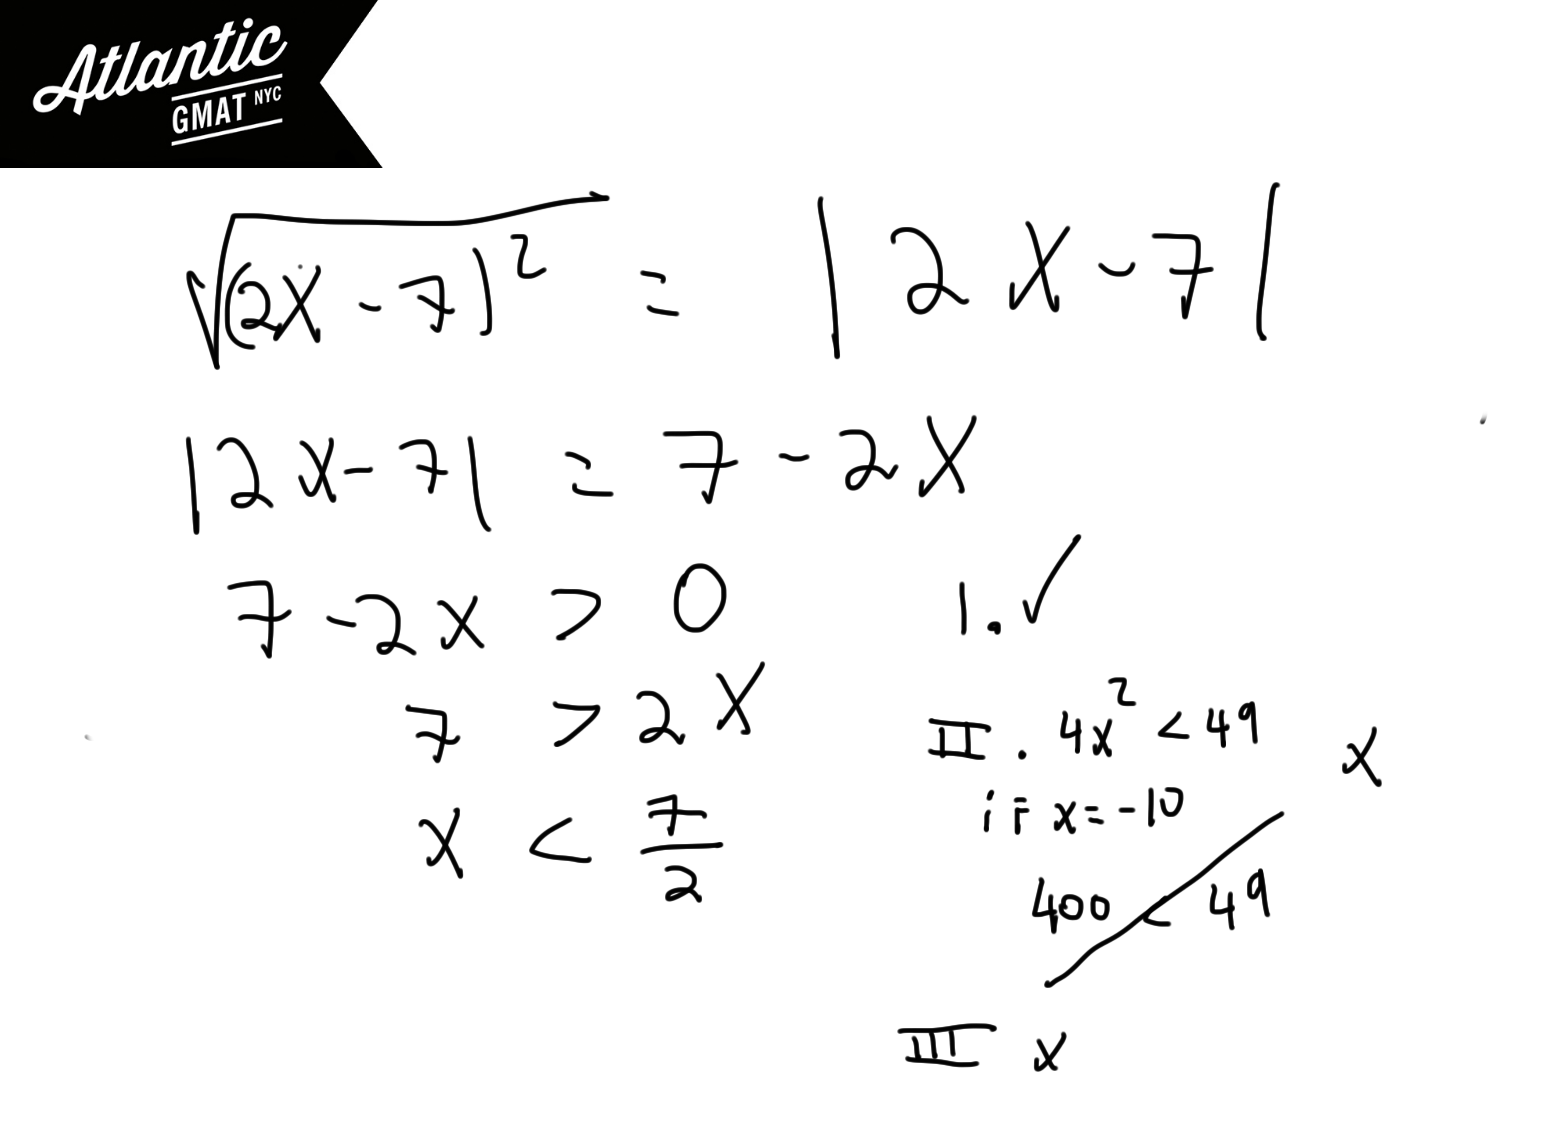 Atlantic
GMAT NYC
√(2x - 7)² = |2x - 7|
|2x - 7| = 7 - 2x
7 - 2x > 0
1. ✓
7 > 2x
II. 4x² < 49 x
x < 7/2
if x = -10
400 < 49
III x